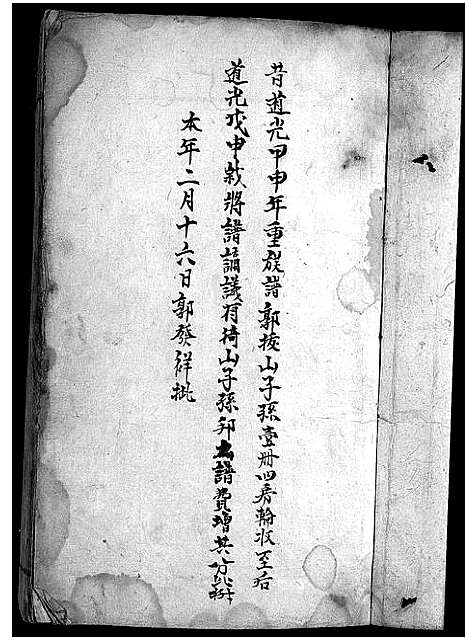 昔道光甲申年重族譜郭拔山子孫壹册四房輪收至后
道光戊申歲將譜議有山子孫譜費增其
本年二月十六日郭發祥批